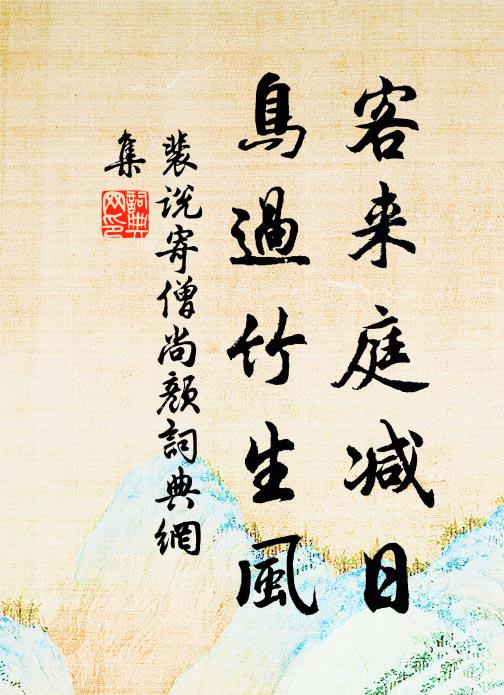 客来庭减日
鳥過竹生風
裴说寄僧尚颜詞典網
集
詞典
网印